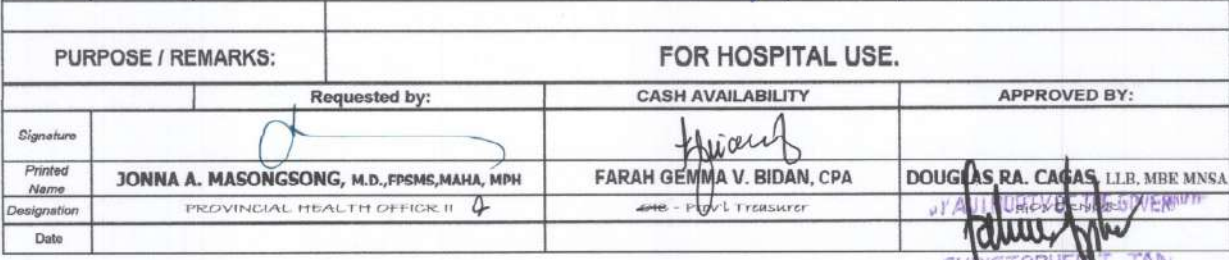 PURPOSE / REMARKS: FOR HOSPITAL USE.
Requested by: CASH AVAILABILITY APPROVED BY:
Signature
Printed Name JONNA A. MASONGSONG, M.D.,FPSMS,MAHA, MPH FARAH GEMMA V. BIDAN, CPA DOUGLAS RA. CAGAS, LLB, MBE MNSA
Designation PROVINCIAL HEALTH OFFICR II OIC - Prov'l Treasurer
Date